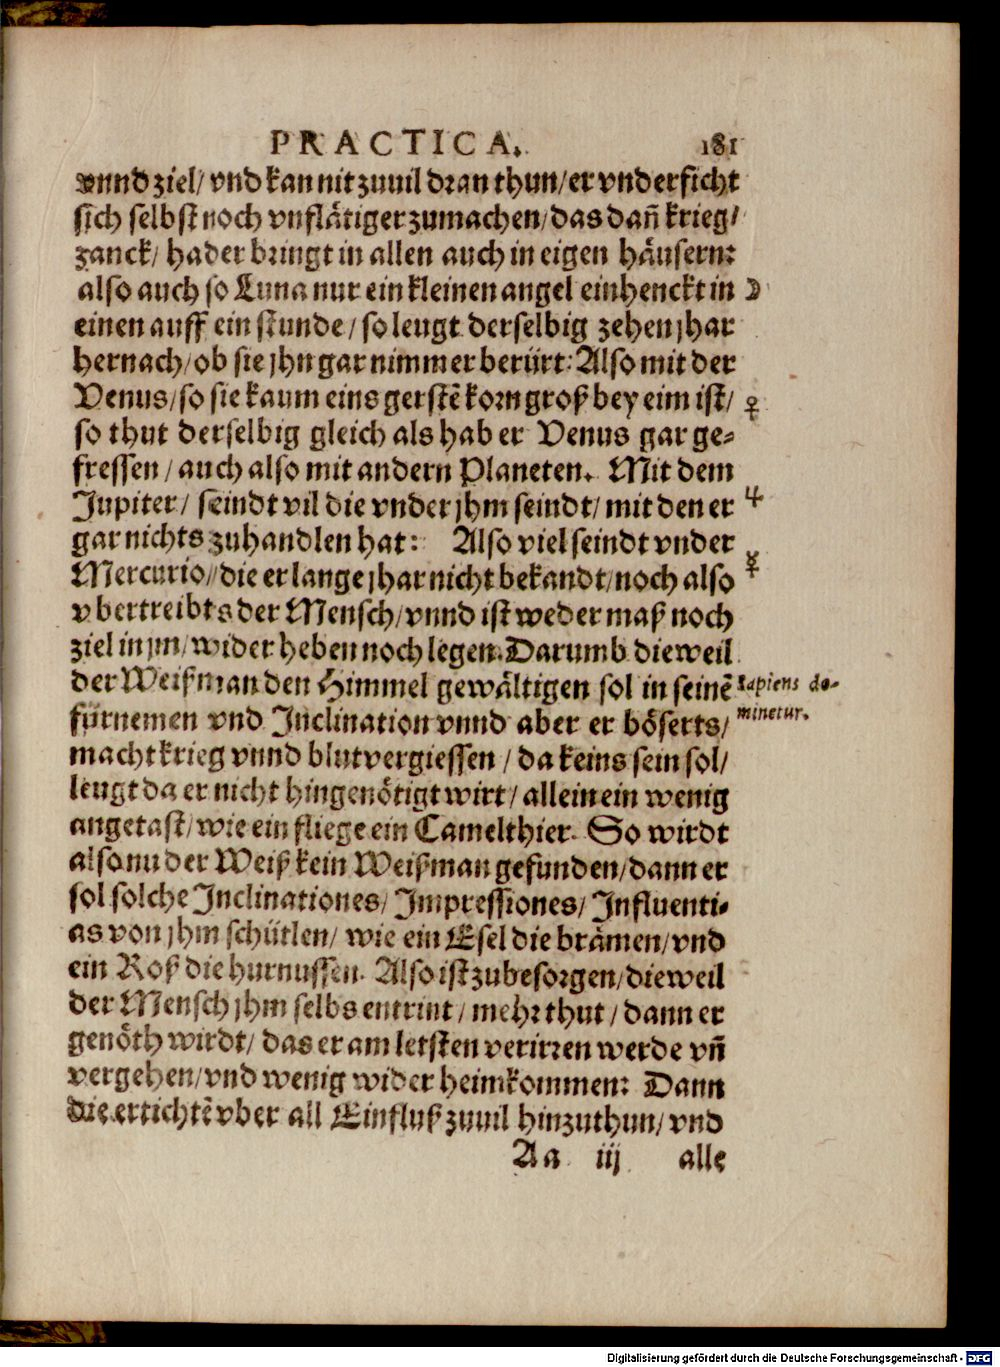 PRACTICA. 181
vnnd ziel/ vnd kan nit zuuil dran thun/ er vnderficht
sich selbst noch vnflätiger zumachen/ das dañ krieg/
zanck/ hader bringt in allen auch in eigen häusern:
also auch so Luna nur ein kleinen angel einhenckt in ☽
einen auff ein stunde/ so leugt derselbig zehen jhar
hernach/ ob sie jhn gar nimmer berürt: Also mit der
Venus/ so sie kaum eins gerstẽ korn groß bey eim ist/ ♀
so thut derselbig gleich als hab er Venus gar ge-
fressen/ auch also mit andern Planeten. Mit dem
Jupiter/ seindt vil die vnder jhm seindt/ mit den er ♃
gar nichts zuhandlen hat: Also viel seindt vnder
Mercurio/ die er lange jhar nicht bekandt/ noch also ☿
vbertreibts der Mensch/ vnnd ist weder maß noch
ziel in jm/ wider heben noch legen. Darumb dieweil
der Weißman den Himmel gewältigen sol in seinẽ sapiens do-
fürnemen vnd Inclination vnnd aber er böserts/ minetur.
macht krieg vnnd blutvergiessen/ da keins sein sol/
leugt da er nicht hingenötigt wirt/ allein ein wenig
angetast/ wie ein fliege ein Camelthier. So wirdt
also nu der Weiß kein Weißman gefunden/ dann er
sol solche Inclinationes/ Impressiones/ Influenti-
as von jhm schütlen/ wie ein Esel die brämen/ vnd
ein Roß die hurnussen. Also ist zubesorgen/ dieweil
der Mensch jhm selbs entrint/ mehr thut/ dann er
genöth wirdt/ das er am letsten verirren werde vñ
vergehen/ vnd wenig wider heimkommen: Dann
die ertichtẽ vber all Einfluß zuuil hinzuthun/ vnd
Aa iij alle
Digitalisierung gefördert durch die Deutsche Forschungsgemeinschaft - DFG